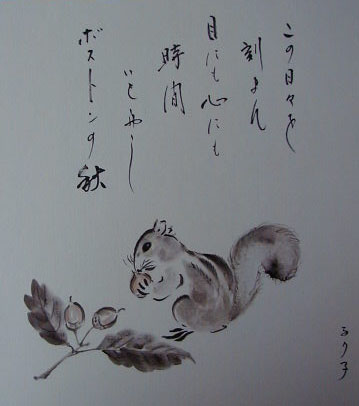 この日々を
刻まん
目にも心にも
時間
いとおし
ボストンの秋
るり子